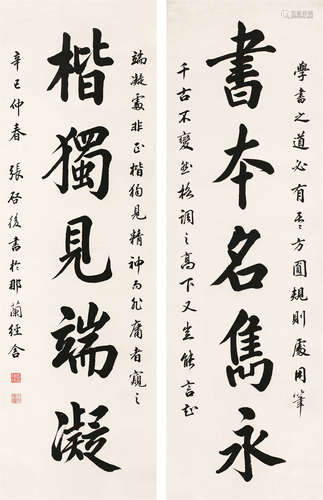 學書之道必有方圓規則處用筆
書本名雋永
千古不變然格調之高下又豈能言
端凝處非正楷獨見精神庸者窺之
楷獨見端凝
辛巳仲春 張啓後書於那蘭經舍